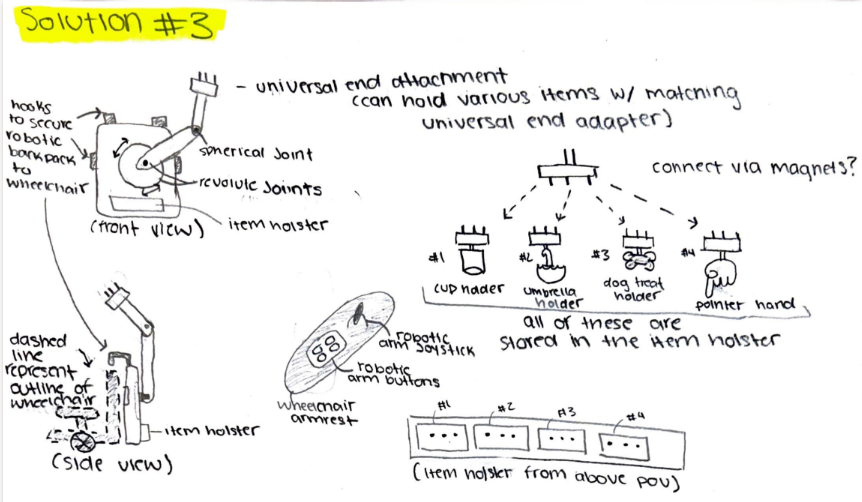 Solution #3
- universal end attachment
(can hold various items w/ matching
universal end adapter)
hooks
to secure
robotic
backpack
to
wheelchair
spherical joint
revolute joints
item holster
(front view)
connect via magnets?
#1
#2
#3
#4
cup holder
umbrella
holder
dog treat
holder
pointer hand
all of these are
stored in the item holster
dashed
line
represent
outline of
wheelchair
item holster
(side view)
robotic
arm joystick
robotic
arm buttons
wheelchair
armrest
#1
#2
#3
#4
(item holster from above pov)